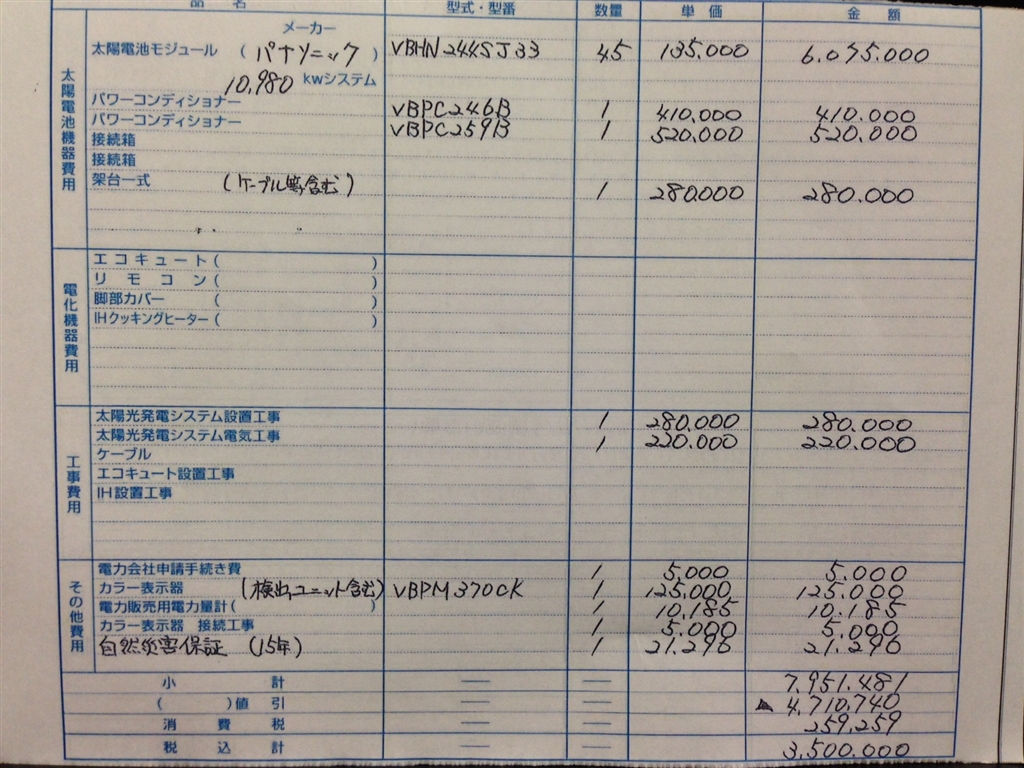 品 名 型式・型番 数量 単価 金額
太陽電池機器費用
メーカー
太陽電池モジュール (パナソニック) VBHN244SJ33 45 135.000 6.075.000
10,980 kwシステム
パワーコンディショナー VBPC246B 1 410.000 410.000
パワーコンディショナー VBPC259B 1 520.000 520.000
接続箱
接続箱
架台一式 (ケーブル等含む) 1 280.000 280.000
電化機器費用
エコキュート( )
リモコン( )
脚部カバー ( )
IHクッキングヒーター( )
工事費用
太陽光発電システム設置工事 1 280.000 280.000
太陽光発電システム電気工事 1 220.000 220.000
ケーブル
エコキュート設置工事
IH設置工事
その他費用
電力会社申請手続き費 1 5.000 5.000
カラー表示器 (検出ユニット含む) VBPM370CK 1 125.000 125.000
電力販売用電力量計( ) 1 10.185 10.185
カラー表示器 接続工事 1 5.000 5.000
自然災害保証 (15年) 1 21.296 21.296
小計 — — 7.951.481
( )値引 — — ▲ 4,710,740
消費税 — — 259,259
税込計 — — 3,500.000